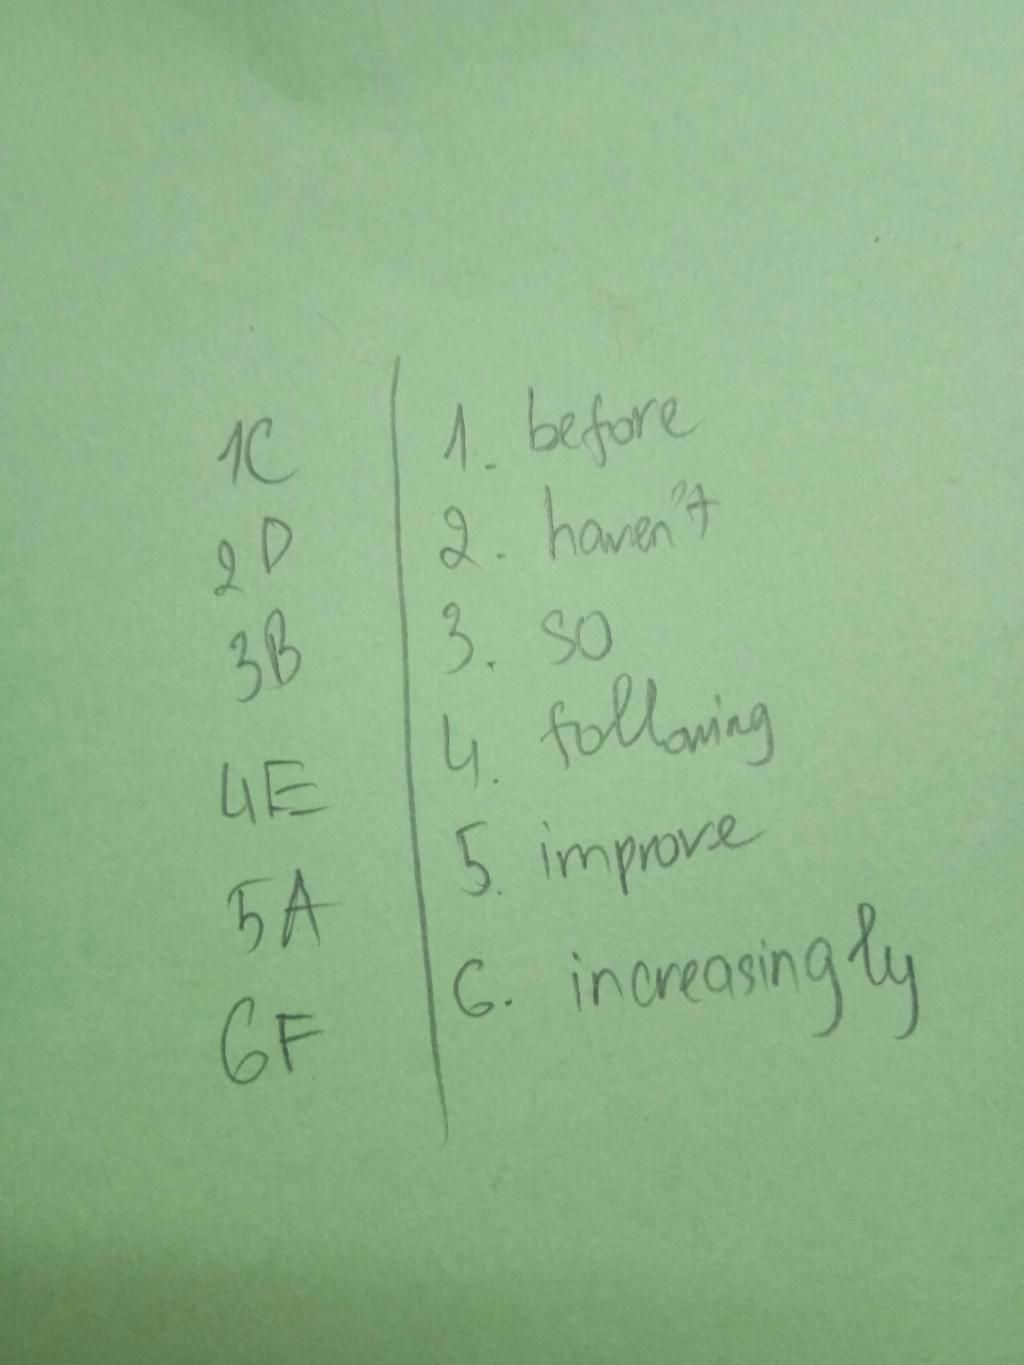 1C
2D
3B
4E
5A
6F
1. before
2. haven't
3. so
4. following
5. improve
6. increasingly